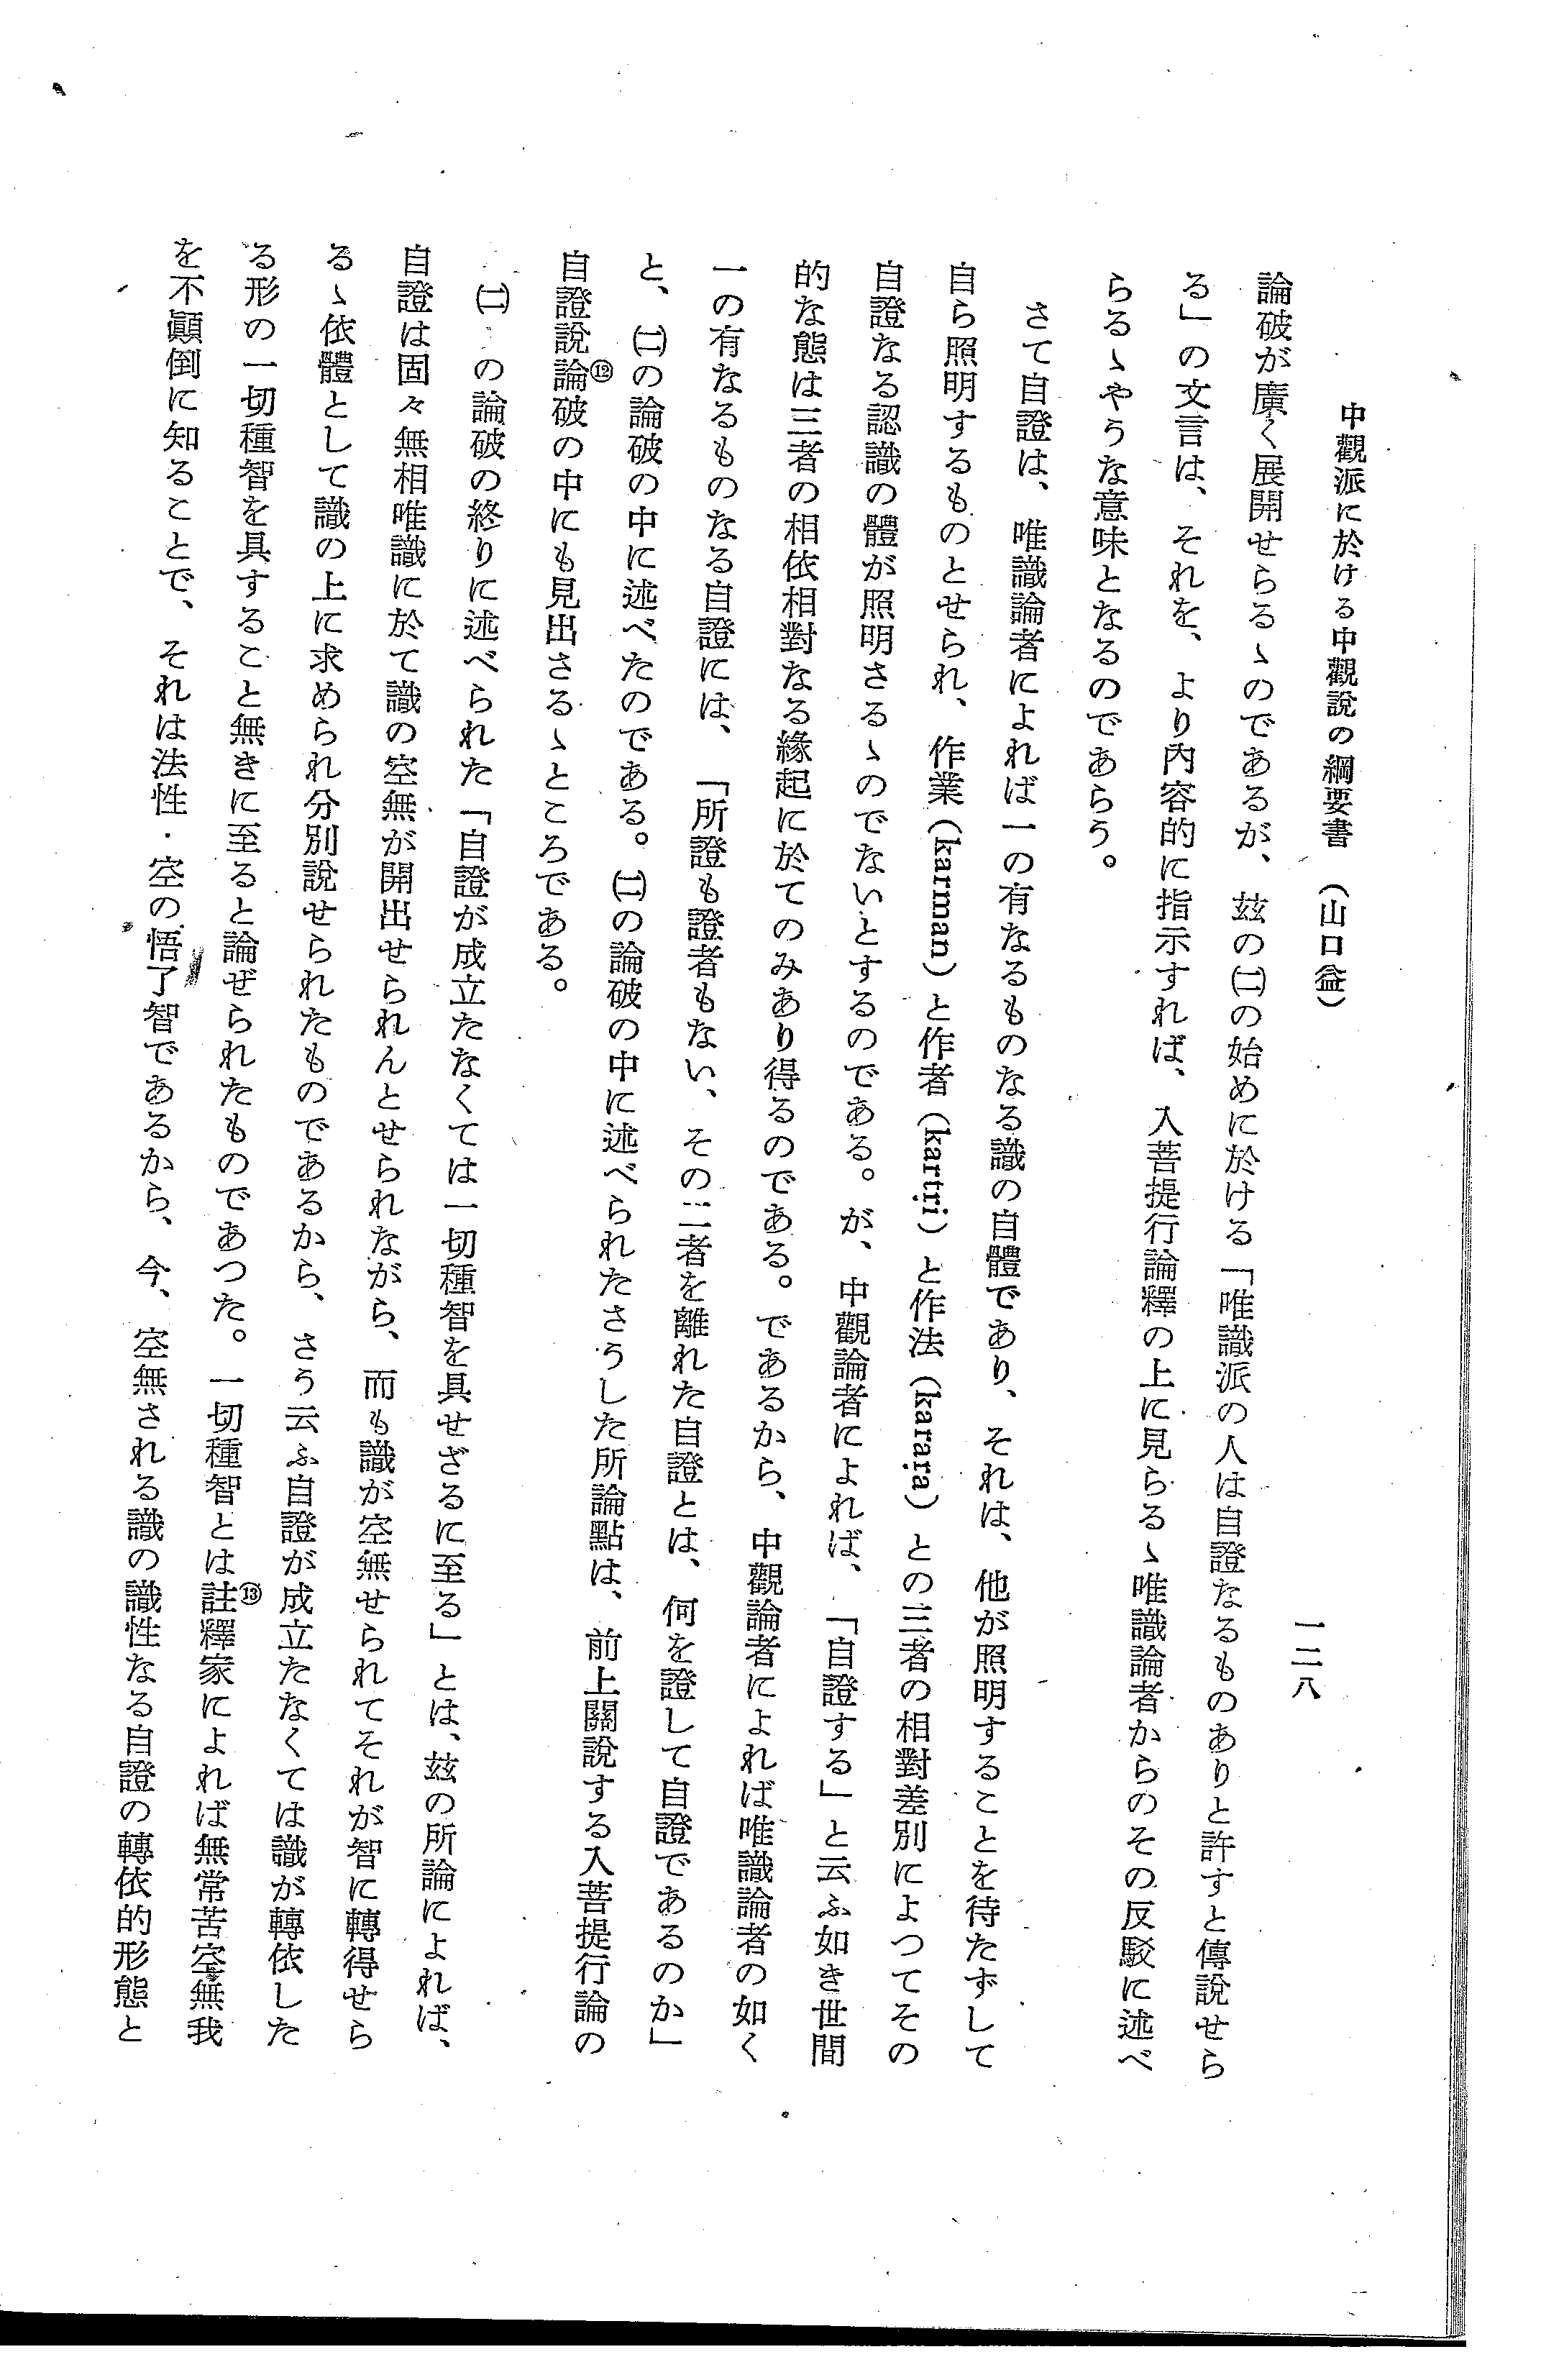 中觀派に於ける中觀說の綱要書（山口益）
一二八
論破が廣く展開せらるゝのであるが、玆の㈡の始めに於ける「唯識派の人は自證なるものありと許すと傳說せら
る」の文言は、それを、より內容的に指示すれば、入菩提行論釋の上に見らるゝ唯識論者からのその反駁に述べ
らるゝやうな意味となるのであらう。
さて自證は、唯識論者によれば一の有なるものなる識の自體であり、それは、他が照明することを待たずして
自ら照明するものとせられ、作業（karman）と作者（kartṛi）と作法（karaṇa）との三者の相對差別によつてその
自證なる認識の體が照明さるゝのでないとするのである。が、中觀論者によれば、「自證する」と云ふ如き世間
的な態は三者の相依相對なる緣起に於てのみあり得るのである。であるから、中觀論者によれば唯識論者の如く
一の有なるものなる自證には、「所證も證者もない、その二者を離れた自證とは、何を證して自證であるのか」
と、㈡の論破の中に述べたのである。㈡の論破の中に述べられたさうした所論點は、前上關說する入菩提行論の
自證說論⑫破の中にも見出さるゝところである。
㈡の論破の終りに述べられた「自證が成立たなくては一切種智を具せざるに至る」とは、玆の所論によれば、
自證は固々無相唯識に於て識の空無が開出せられんとせられながら、而も識が空無せられてそれが智に轉得せら
るゝ依體として識の上に求められ分別說せられたものであるから、さう云ふ自證が成立たなくては識が轉依した
る形の一切種智を具すること無きに至ると論ぜられたものであつた。一切種智とは註⑬釋家によれば無常苦空無我
を不顚倒に知ることで、それは法性・空の悟了智であるから、今、空無される識の識性なる自證の轉依的形態と